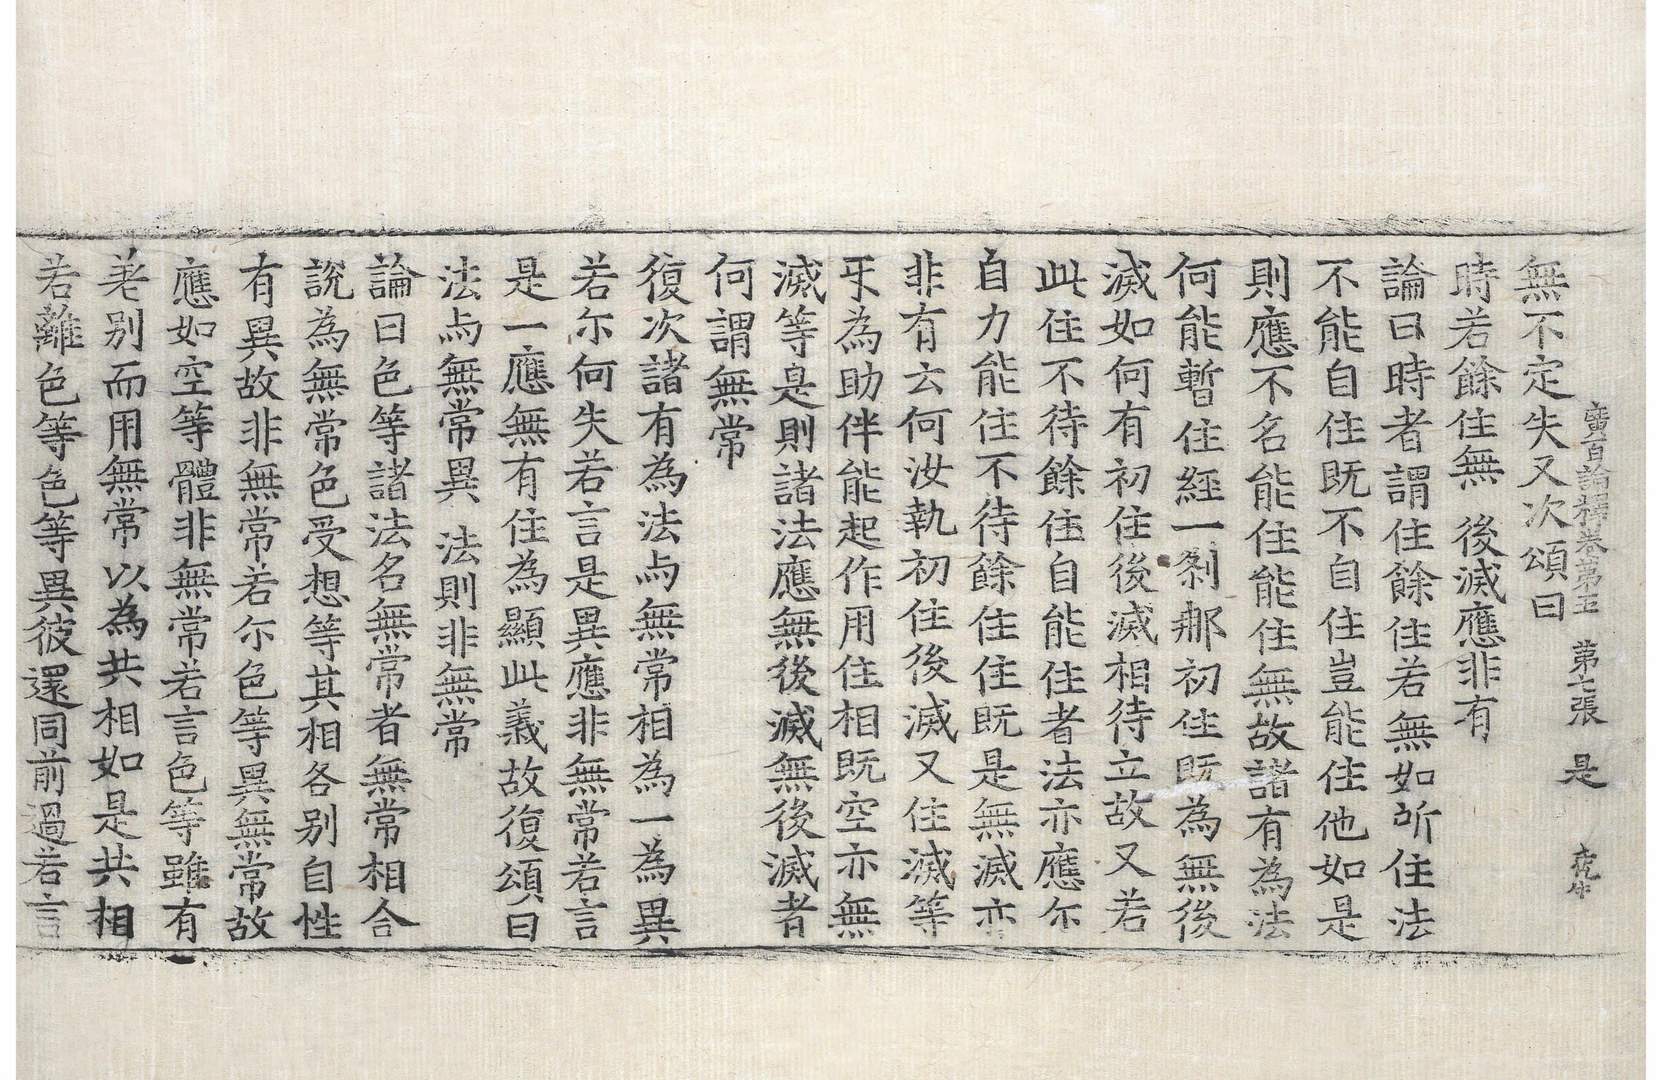 廣百論釋卷第五 第七張 是
無不定失又次頌曰
時若餘住無 後滅應非有
論曰時者謂住餘住若無如所住法
不能自住既不自住豈能住他如是
則應不名能住能住無故諸有為法
何能暫住經一刹那初住既為無後
滅如何有初住後滅相待立故又若
此住不待餘住自能住者法亦應尒
自力能住不待餘住住既是無滅亦
非有云何汝執初住後滅又住滅等
㸦為助伴能起作用住相既空亦無
滅等是則諸法應無後滅無後滅者
何謂無常
復次諸有為法与無常相為一為異
若尒何失若言是異應非無常若言
是一應無有住為顯此義故復頌曰
法与無常異 法則非無常
論曰色等諸法名無常者無常相合
說為無常色受想等其相各别自性
有異故非無常若尒色等異無常故
應如空等體非無常若言色等雖有
差别而用無常以為共相如是共相
若離色等色等異彼還同前過若言